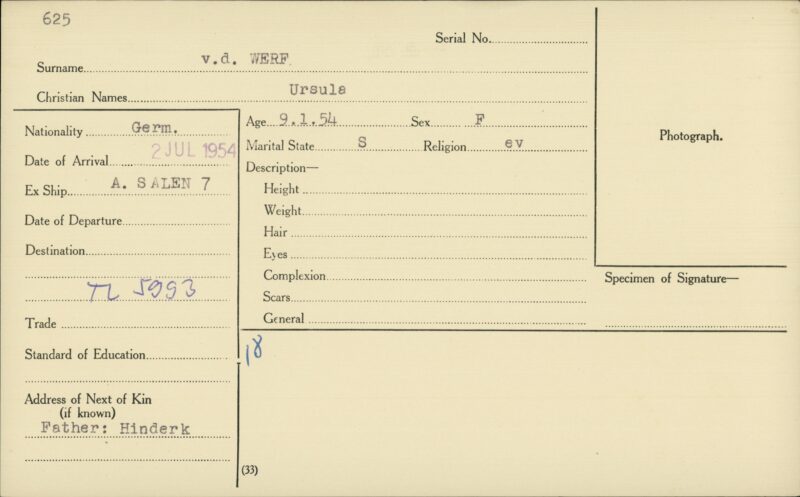 625
Serial No.
Surname v.d. WERF
Christian Names Ursula
Nationality Germ.
Date of Arrival 2 JUL 1954
Ex Ship A. SALEN 7
Date of Departure
Destination
TL 5993
Trade
Standard of Education
Address of Next of Kin
(if known)
Father: Hinderk
Age 9.1.54 Sex F
Marital State S Religion ev
Description—
Height
Weight
Hair
Eyes
Complexion
Scars
General
18
(33)
Photograph.
Specimen of Signature—